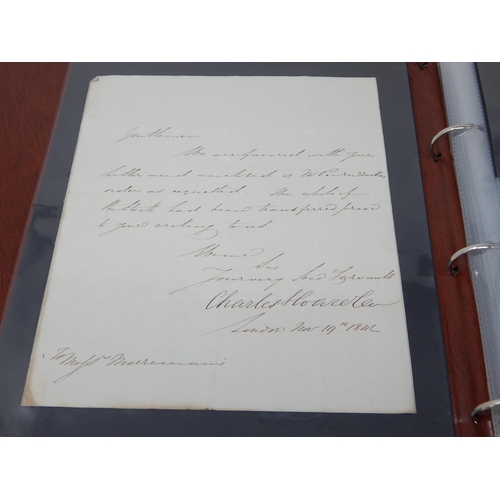 Gentlemen
We are favored with your
letter and enclosed is Mr
order as requested. The whole of
the Stock had been transferred previ
to your writing to us.
We are
Sirs
Your very hbl Servants
Charles Hoare & Co
London Nov 19th 184
To Messrs Merriman's